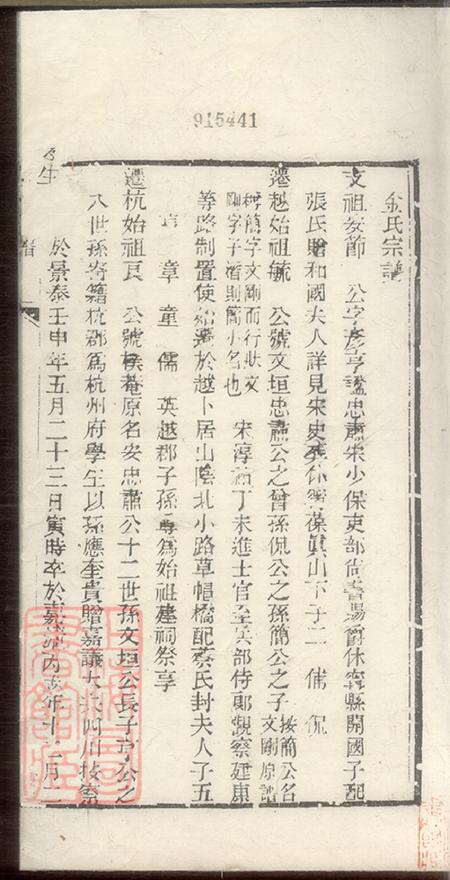 915441
金氏宗譜
支祖安節　公字彥亨諡忠肅宋少保吏部尚書賜爵休寧縣開國子配
張氏贈和國夫人詳見宋史葬休寧葆真山下子二　侁　侃
遷越始祖毓　公號文垣忠肅公之曾孫侃公之孫簡公之子 按簡公名文剛原譜
稱簡字文剛而行狀文剛字子潛則簡小名也　宋淳祐丁未進士官至兵部侍郎觀察建康
等路制置使始遷於越卜居山陰北小路草帽橋配蔡氏封夫人子五
章　童　儒　英越郡子孫尊爲始祖建祠祭享
遷杭始祖良　公號樸菴原名安忠肅公十二世孫文垣公長子亨公之
八世孫寄籍杭郡爲杭州府學生以孫應奎貴贈嘉議大夫四川按察
生於景泰壬申年五月二十三日寅時卒於嘉靖丙戌年十二月二